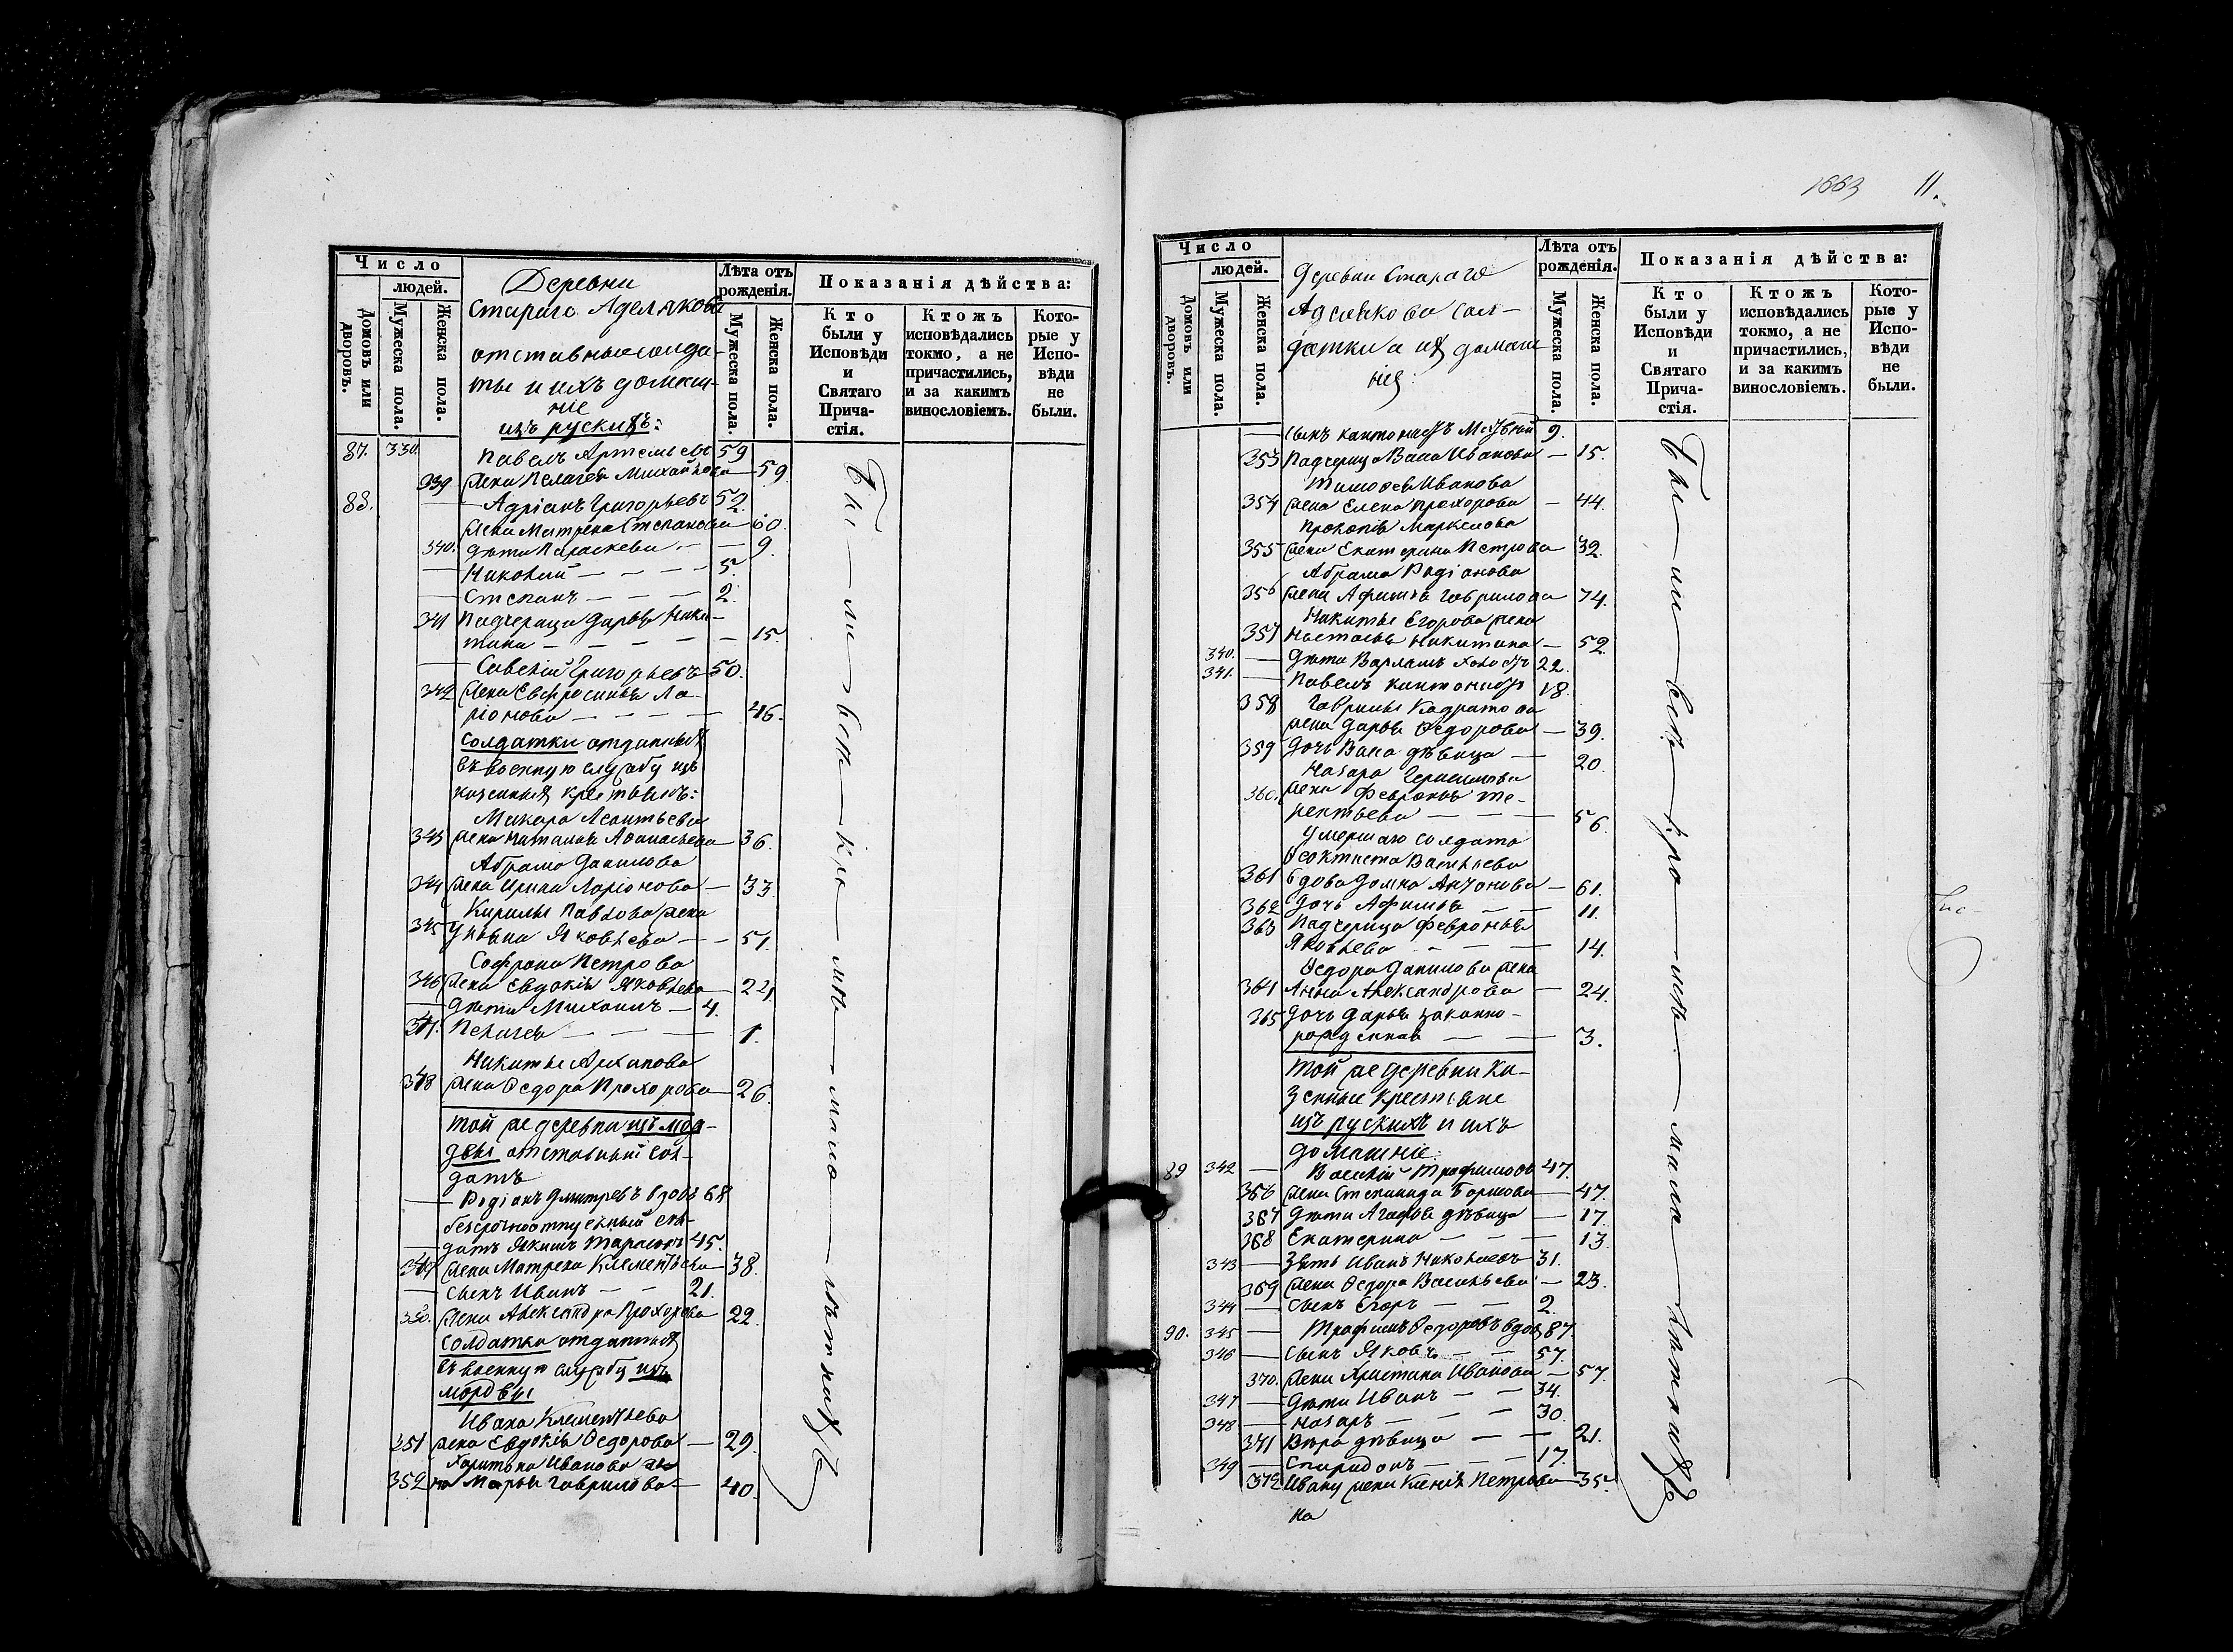 Число
людей.
Домовъ или дворовъ.
Мужеска пола.
Женска пола.
Деревни
Стараго Аделякова
отставные солда-
ты и ихъ домаш-
ніе
изъ рускихъ:
Лѣта отъ рожденія.
Мужеска пола.
Женска пола.
Показанія дѣйства:
Кто были у Исповѣди и Святаго Прича-стія.
Ктожъ исповѣдались токмо, а не причастились, и за какимъ винословіемъ.
Кото-рые у Испо-вѣди не были.
87. 330. Павелъ Артемьевъ 59
339 жена Пелагея Михайлова — 59.
88. — Адріанъ Григорьевъ 52.
жена Матрена Степанова — 60.
340. дѣти Параскева — — 9.
— Николай — — — 5.
— Степанъ — — — 2.
341 Падчерица Дарья Ники-
тина — — — — 15.
— Савелій Григорьевъ 50.
342 жена Евфросинья Ла-
ріонова — — — — 46.
Солдатки отданныхъ
въ военную службу изъ
казенныхъ крестьянъ:
Макара Леонтьева
343 жена Наталья Афанасьева — 36.
Абрама Данилова
344 жена Ирина Ларіонова — 33.
Кирилы Павлова жена
345 Ульяна Яковлева — — 51.
Софрона Петрова
346 жена Евдокія Яковлева — 24.
— дѣти Михаилъ — 4.
347. Пелагея — — — 1.
Никиты Архипова
348 жена Федора Прохорова — 26.
той же деревни изъ мор-
двы отставный сол-
датъ
— Родіанъ Дмитревъ вдовъ 68
безсрочноотпускный сол-
— датъ Якимъ Тарасовъ 45.
349 жена Матрена Клементьева — 38.
— сынъ Иванъ — — 21.
350. жена Александра Прохорова 22.
Солдатки отданныхъ
въ военную службу изъ
мордвы
Ивана Клементьева
351 жена Евдокія Федорова — 29.
Харитона Иванова же
352 на Марья Гаврилова — 40.
Бы — ли — всѣ — кро — мѣ — мало — лѣтнихъ
1663 11.
Число
людей.
Домовъ или дворовъ.
Мужеска пола.
Женска пола.
Деревни Стараго
Аделякова сол-
датки и ихъ домаш
ніе
Лѣта отъ рожденія.
Мужеска пола.
Женска пола.
Показанія дѣйства:
Кто были у Исповѣди и Святаго Прича-стія.
Ктожъ исповѣдались токмо, а не причастились, и за какимъ винословіемъ.
Кото-рые у Испо-вѣди не были.
— сынъ кантонистъ 9.
353 Падчерица Васа Иванова — 15.
Тимофея Иванова
354 жена Елена Прохорова — 44.
Прокопія Маркелова
355 жена Екатерина Петрова 32.
Абрама Радіонова
356 жена Афимья Гаврилова 74.
Никиты Егорова жена
357 Настасья Никитина — 52.
340. — дѣти Варламъ холостъ 22.
341. — Павелъ кантонистъ 18.
358 Гаврилы Кадратова
жена Дарья Федорова — 39.
359 дочь Васа дѣвица — 20.
Назара Герасимова
360. жена Февронья Те-
рентьева — — — 56.
Умершаго солдата
Феоктиста Васильева
361 вдова Домна Антонова — 61.
362 дочь Афимья — — 11.
363 Падчерица Февронья
Яковлева — — — 14.
Федора Данилова жена
364 Анна Александрова — 24.
365 дочь Дарья законно-
рожденная — — 3.
Той же деревни ка-
зенные крестьяне
изъ рускихъ и ихъ
домашніе:
89 342 — Василій Трофимовъ 47.
366 жена Степанида — 47.
367 дѣти Агафья дѣвица — 17.
368 Екатерина — — — 13.
343 — зять Иванъ Николаевъ 31.
369 жена Федора Васильева — 23.
344 — сынъ Егоръ — — 2.
90. 345 — Трофимъ Федоровъ вдовъ 87.
346 — сынъ Яковъ — — 57.
370. жена Христина Иванова — 57.
347 — дѣти Иванъ — — 34.
348 — Назаръ — — — 30.
371 Вѣра дѣвица — — 21.
349 — Спиридонъ — — — 17.
372 Ивану жена Ксенія Петрова — 35.
на
Бы — ли — всѣ — кро — мѣ — мало — лѣтнихъ